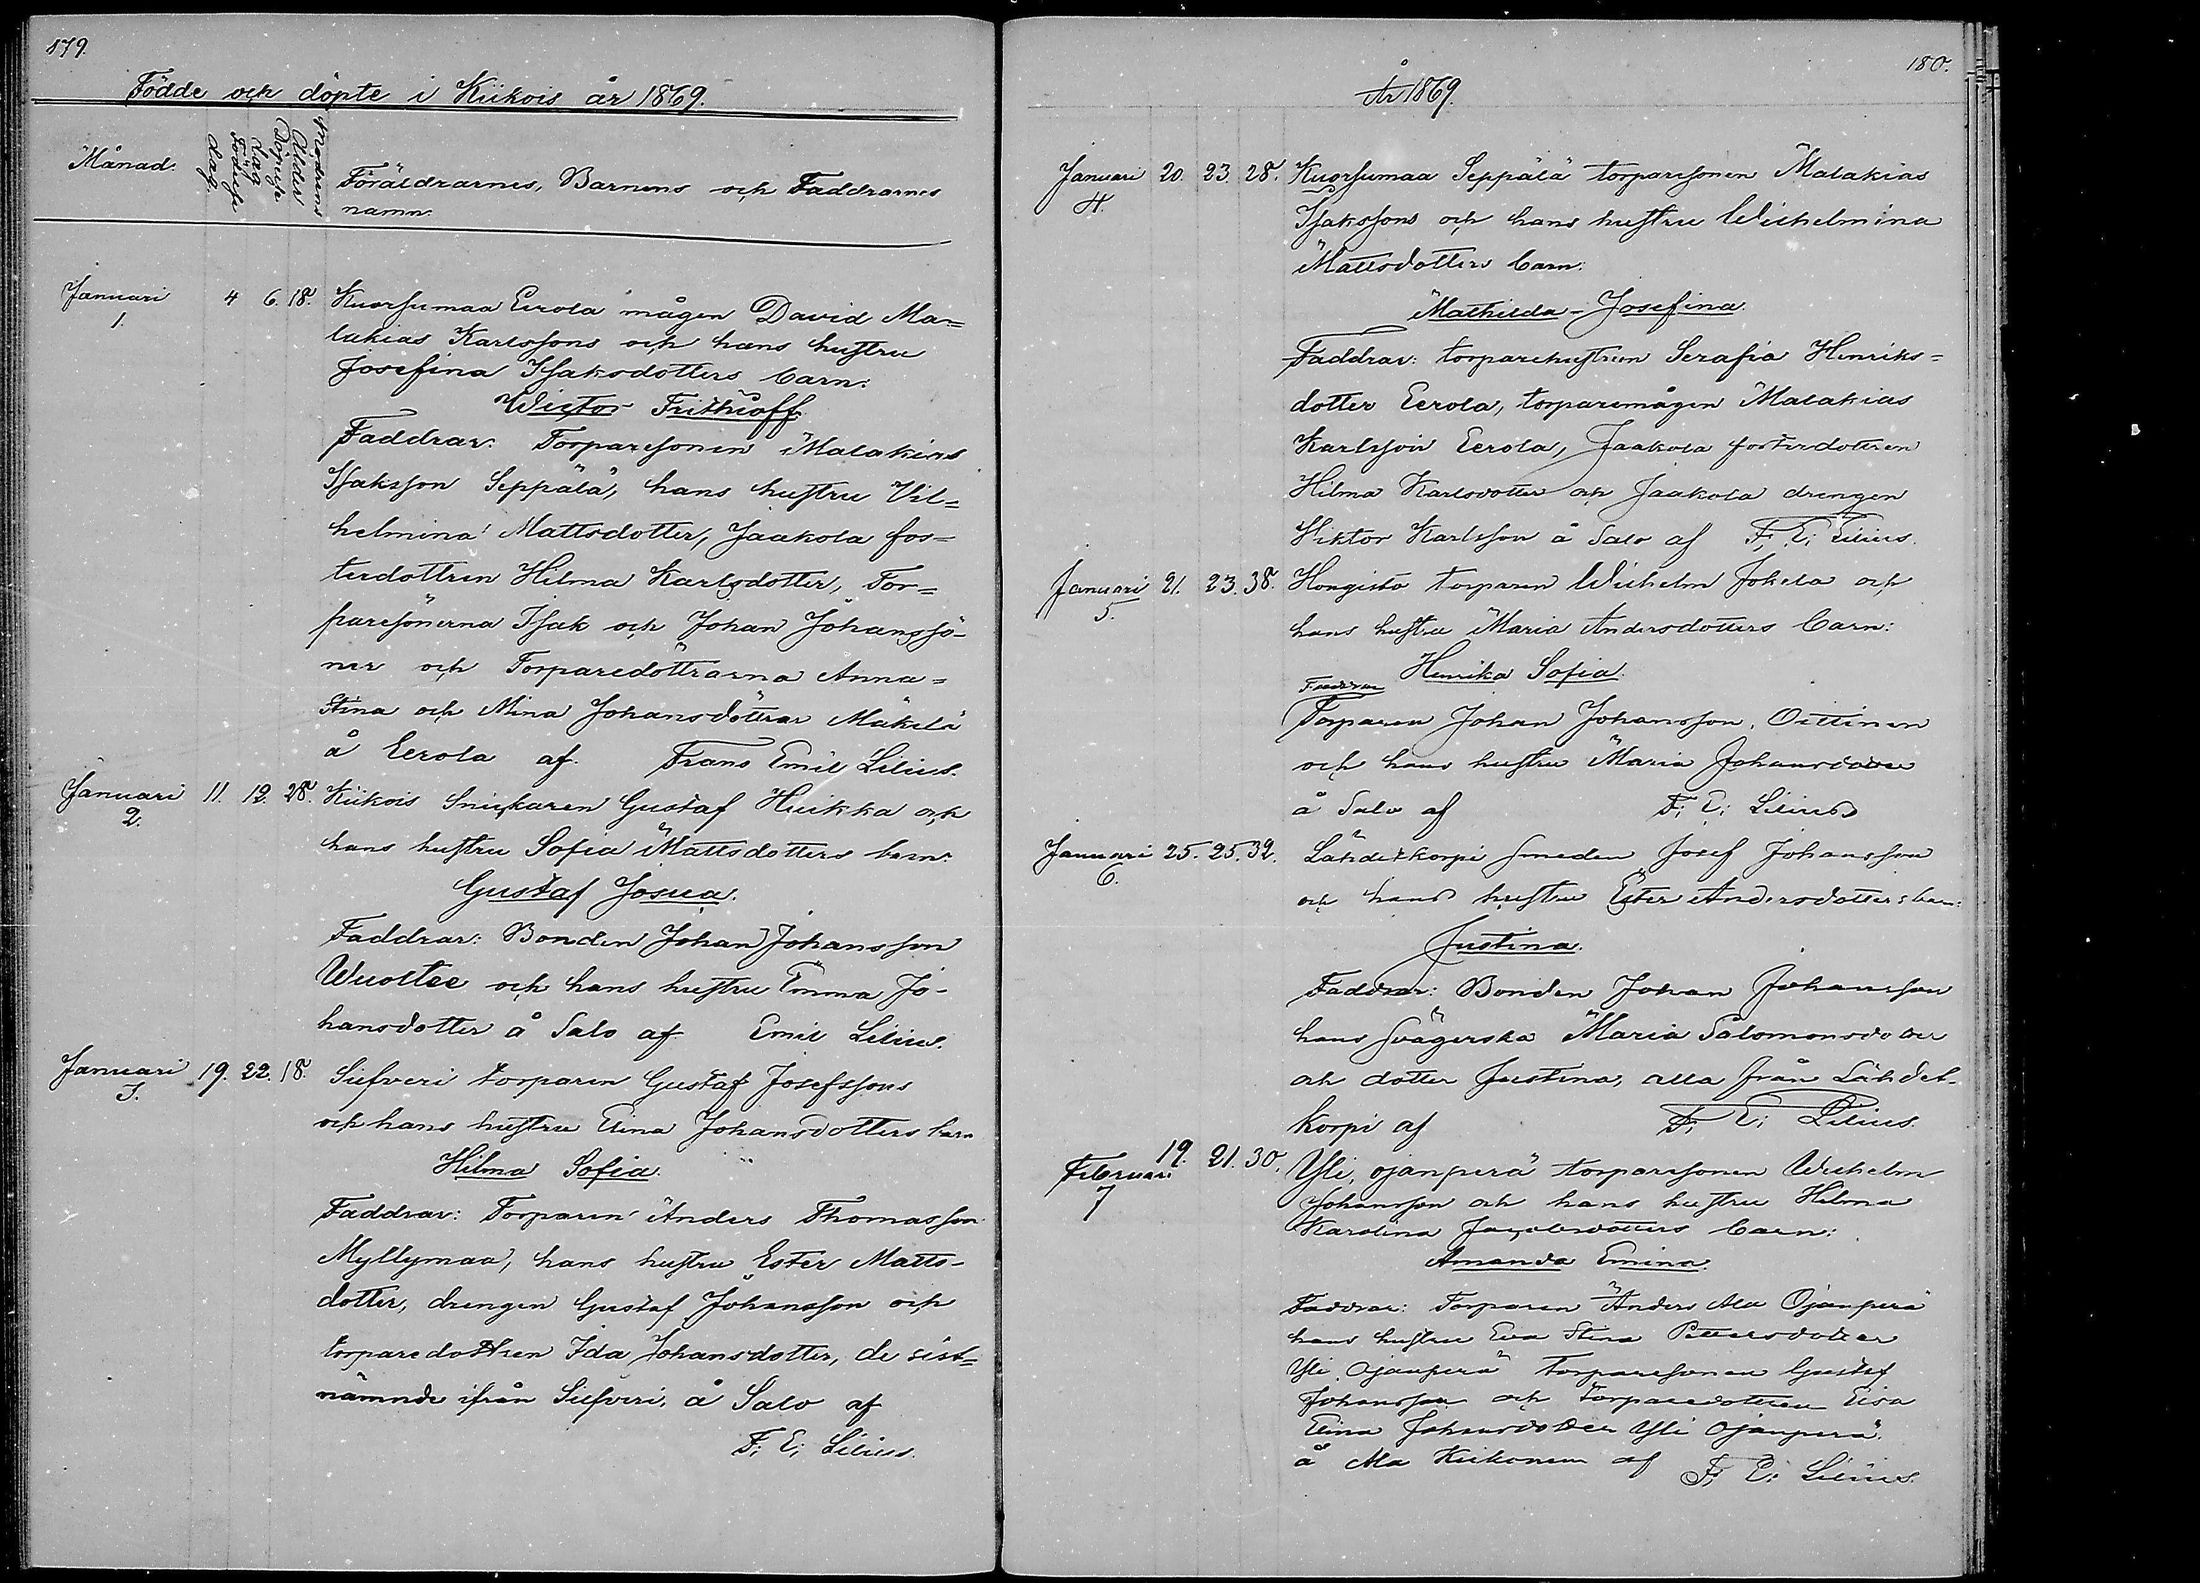 179.
Födde och döpte i Kiikois år 1869.
Månad.
Födelse dag.
Döpelse dag
Modrens ålder
Föräldrarnes, Barnens och Faddrarnes
namn.
Januari 4 6. 18. Kuorsumaa Eerola mågen David Ma-
1.
lakias Karlssons och hans hustru
Josefina Isaksdotters barn:
Wictor Frithioff
Faddrar: Torparesonen Malakias
Isaksson Seppälä, hans hustru Vil-
helmina Mattsdotter, Jaakola fos-
terdottren Hilma Karlsdotter, Tor-
paresönerna Isak och Johan Johanssö-
ner och Torparedöttrarna Anna-
Stina och Mina Johansdöttrar Mäkelä
å Eerola af Frans Emil Lilius.
Januari 11. 12. 28. Kiikois Snickaren Gustaf Huikka och
2.
hans hustru Sofia Mattsdotters barn:
Gustaf Josua.
Faddrar: Bonden Johan Johansson
Wuoltee och hans hustru Emma Jo-
hansdotter å Salo af Emil Lilius.
Januari 19. 22. 18. Siefveri torparen Gustaf Josefssons
3.
och hans hustru Eina Johansdotters barn
Hilma Sofia.
Faddrar: Torparen Anders Thomasson
Myllymaa, hans hustru Ester Matts-
dotter, drengen Gustaf Johansson och
torparedottren Ida Johansdotter, de sist-
nämnde ifrån Siefveri, å Salo af
F. E. Lilius.
180.
År 1869.
Januari 20. 23. 28. Kuorsumaa Seppälä torparesonen Malakias
4.
Isakssons och hans hustru Wilhelmina
Mattsdotters barn:
Mathilda-Josefina.
Faddrar: torparehustrun Serafia Henriks-
dotter Eerola, torparemågen Malakias
Karlsson Eerola, Jaakola fosterdottren
Hilma Karlsdotter och Jaakola drengen
Viktor Karlsson å Salo af F. E. Lilius.
Januari 21. 23. 38. Hongisto torparen Wilhelm Jokela och
5.
hans hustru Maria Andersdotters barn:
Henrika Sofia.
Faddrar
Torparen Johan Johansson Oittinen
och hans hustru Maria Johansdotter
å Salo af F. E. Lilius
Januari 25. 25. 32. Lähdekorpi smeden Josef Johansson
6.
och hans hustru Ester Andersdotters barn:
Justina.
Faddrar: Bonden Johan Johansson
hans svägerska Maria Salomonsdotter
och dotter Justina, alla från Lähdet-
korpi af F. E. Lilius
Februari 19. 21. 30. Yli, ojanperä torparesonen Wilhelm
7
Johansson och hans hustru Hilma
Karolina Jacobsdotters barn:
Amanda Emina.
Faddrar: Torparen Anders Ala Ojanperä
hans hustru Eva Stina Pettersdotter
Yli Ojanperä torparesonen Gustaf
Johansson och torparedottren Eisa
Eina Johansdotter Yli Ojanperä,
å Ala Kiikonen af F. E. Lilius.